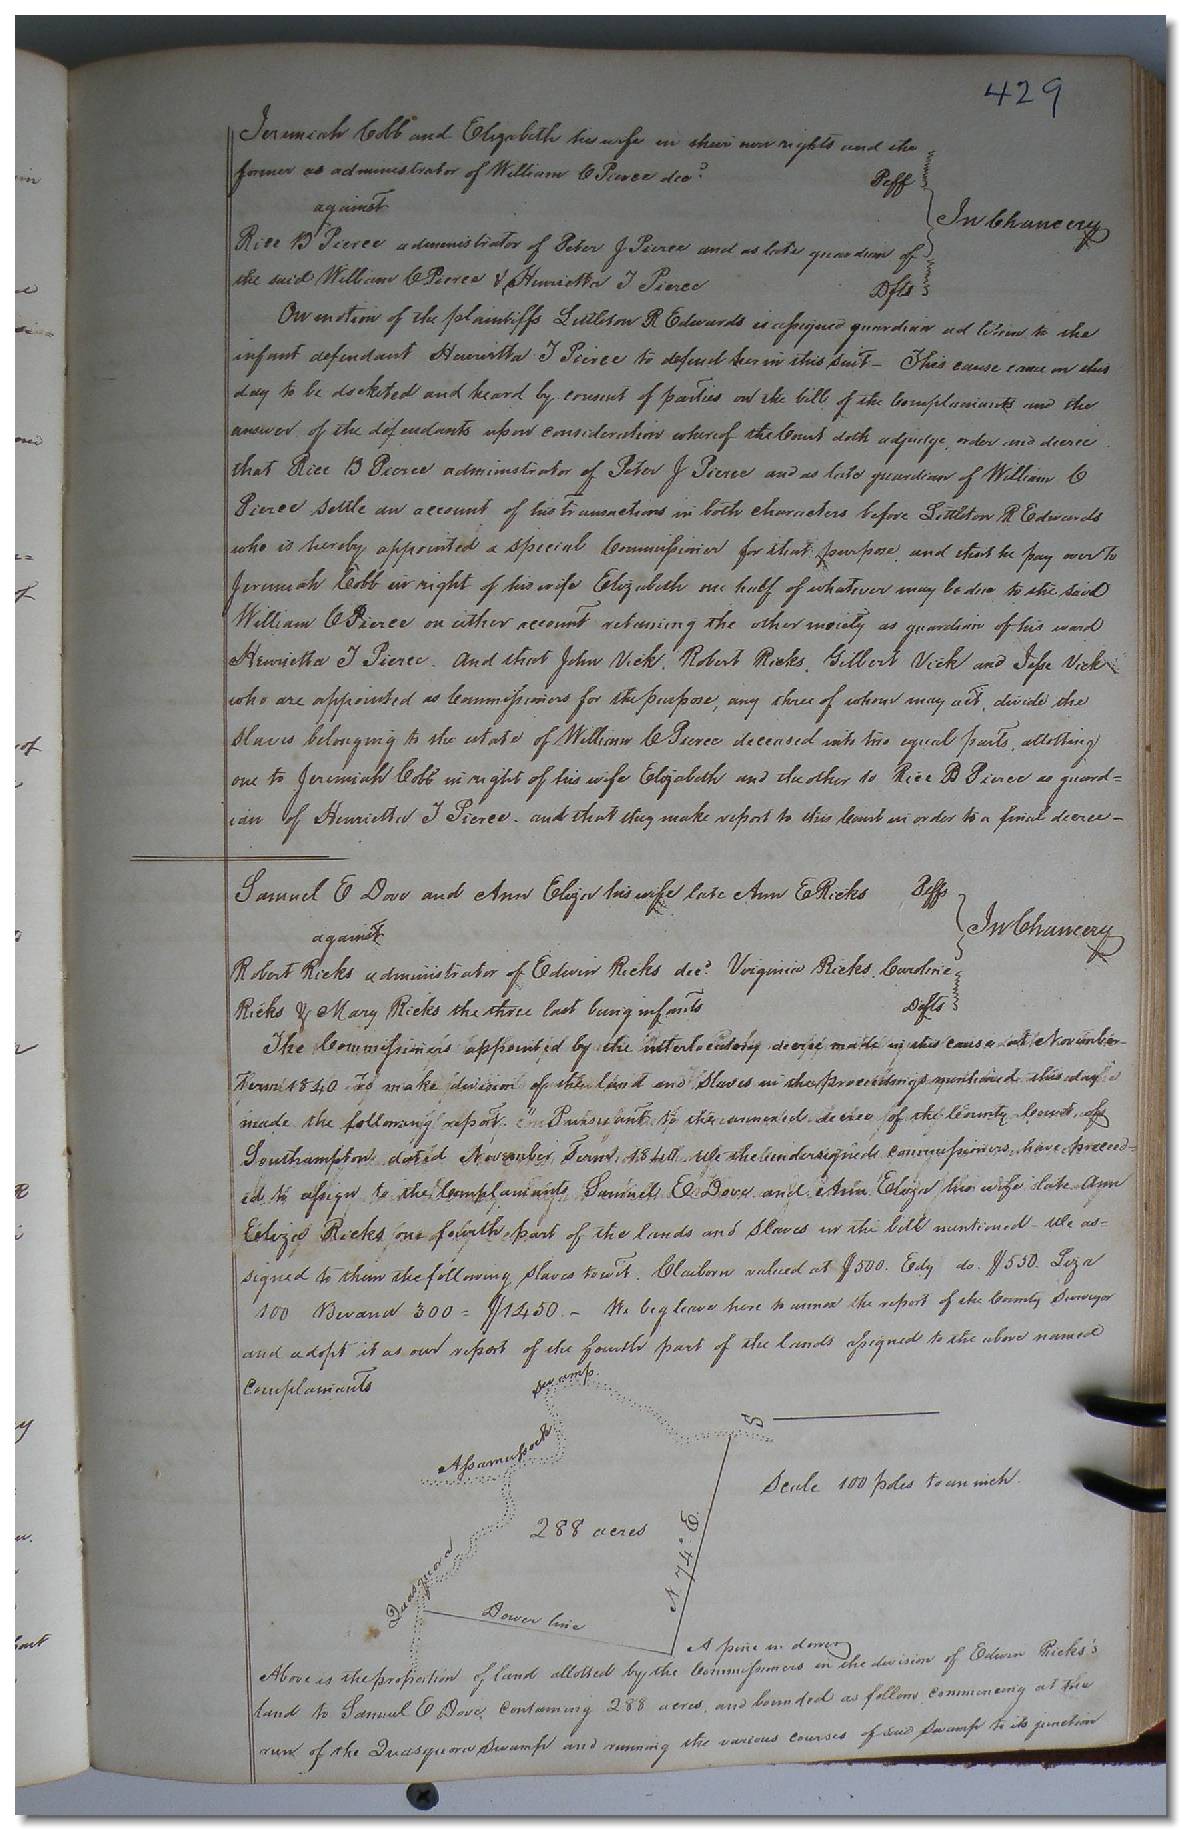 429
Jeremiah Cobb and Elizabeth his wife in their own rights and the
former as administrator of William C Pierce decd
Plff
against
In Chancery
Rice B Pierce administrator of Peter J Pierce and as late guardian of
the said William C Pierce & Henrietta T Pierce
Dfts
On motion of the plaintiffs Littleton R Edwards is assigned guardian ad litem to the
infant defendant Henrietta T Pierce to defend her in this suit – This cause came on this
day to be docketed and heard by consent of parties on the bill of the Complainants and the
answer of the defendants upon consideration whereof the Court doth adjudge, order and decree
that Rice B Pierce administrator of Peter J Pierce and as late guardian of William C
Pierce settle an account of his transactions in both characters before Littleton R Edwards
who is hereby appointed a special Commissioner for that purpose, and that he pay over to
Jeremiah Cobb in right of his wife Elizabeth one half of whatever may be due to the said
William C Pierce on either account retaining the other moiety as guardian of his ward
Henrietta T Pierce. And that John Vick, Robert Ricks, Gilbert Vick and Jesse Vick
who are appointed as Commissioners for the purpose, any three of whom may act, divide the
slaves belonging to the estate of William C Pierce deceased into two equal parts, allotting
one to Jeremiah Cobb in right of his wife Elizabeth and the other to Rice B Pierce as guard=
ian of Henrietta T Pierce – and that they make report to this Court in order to a final decree –
Samuel E Dove and Ann Eliza his wife late Ann E Ricks
Plffs
against
In Chancery
Robert Ricks administrator of Edwin Ricks decd. Virginia Ricks, Caroline
Ricks & Mary Ricks the three last being infants
Dfts
The Commissioners appointed by the interlocutory decree made in this cause at November
Term 1840 to make division of the land and slaves in the proceedings mentioned this day
made the following report. "Pursuant to the annexed decree of the County Court of
Southampton dated November Term 1840 We the undersigned commissioners have proceed-
ed to assign to the complainants Samuel E Dove and Ann Eliza his wife late Ann
Eliza Ricks one fourth part of the lands and slaves in the bill mentioned – We as-
signed to them the following slaves to wit. Claiborn valued at $500. Edy do. $550. Liza
100 300 = $1450. – We beg leave here to annex the report of the County Surveyor
and adopt it as our report of the fourth part of the lands assigned to the above named
Complainants
Swamp
Assamusock
S
Scale 100 poles to an inch
288 acres
N 74° E
Quasquora
Dower line
A pine in dower
Above is the proportion of land allotted by the Commissioners in the division of Edwin Ricks's
land to Samuel E Dove, containing 288 acres, and bounded as follow, commencing at the
run of the Quasquora Swamp and running the various courses of said Swamp to its junction